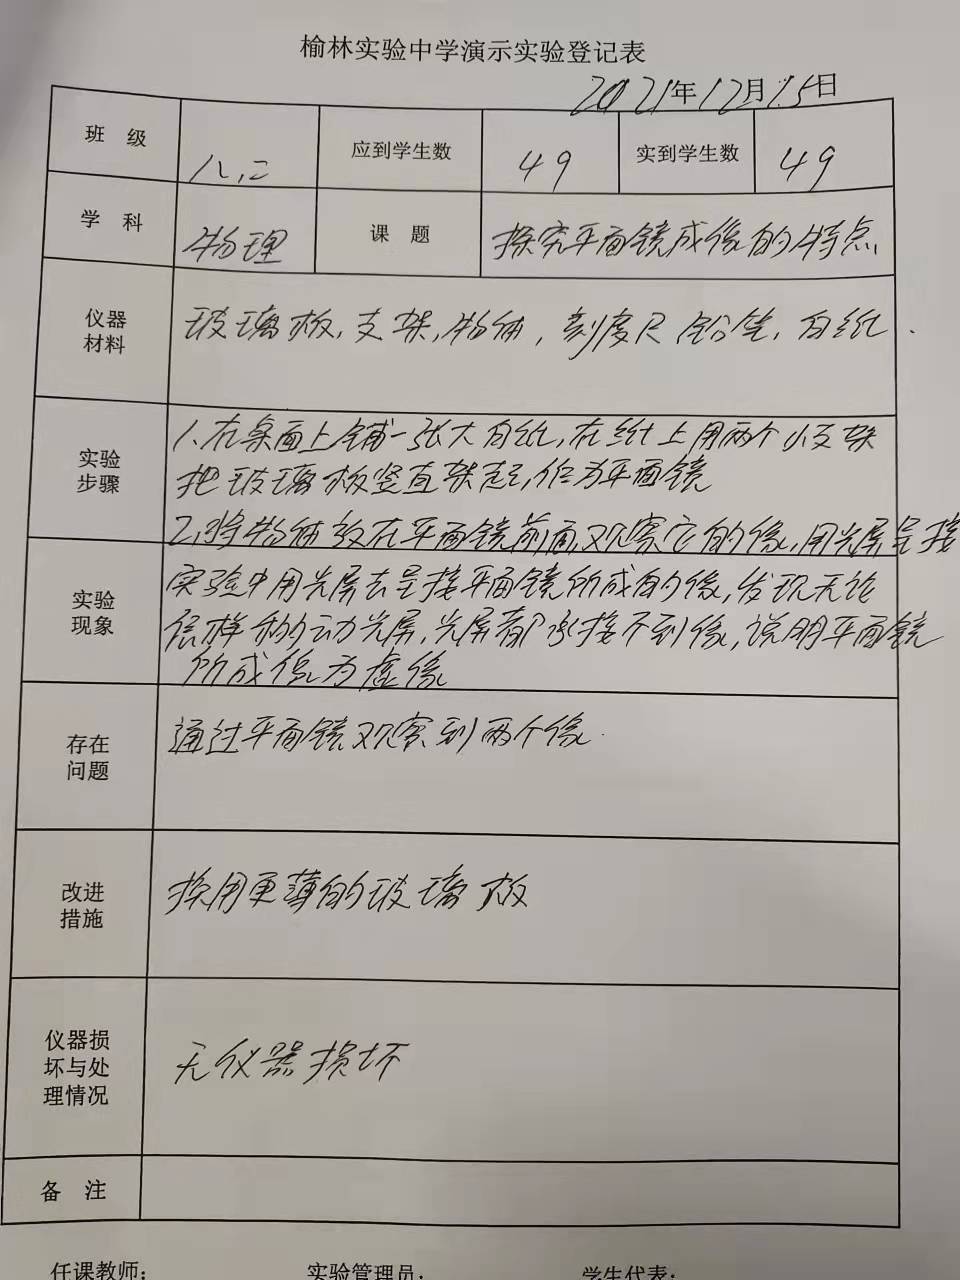 榆林实验中学演示实验登记表
2021年12月15日
班 级 八.二 应到学生数 49 实到学生数 49
学 科 物理 课 题 探究平面镜成像的特点
仪器
材料
玻璃板,支架,物体,刻度尺 铅笔,白纸.
实验
步骤
1.在桌面上铺一张大白纸,在纸上用两个小支架
把玻璃板竖直架起,作为平面镜
2.将物体放在平面镜前面,观察它的像,用光屏呈接
实验
现象
实验中用光屏去呈接平面镜所成的像,发现无论
怎样移动光屏,光屏都承接不到像,说明平面镜
所成像为虚像
存在
问题
通过平面镜观察到两个像.
改进
措施
换用更薄的玻璃板
仪器损
坏与处
理情况
无仪器损坏
备 注
任课教师: 实验管理员: 学生代表: